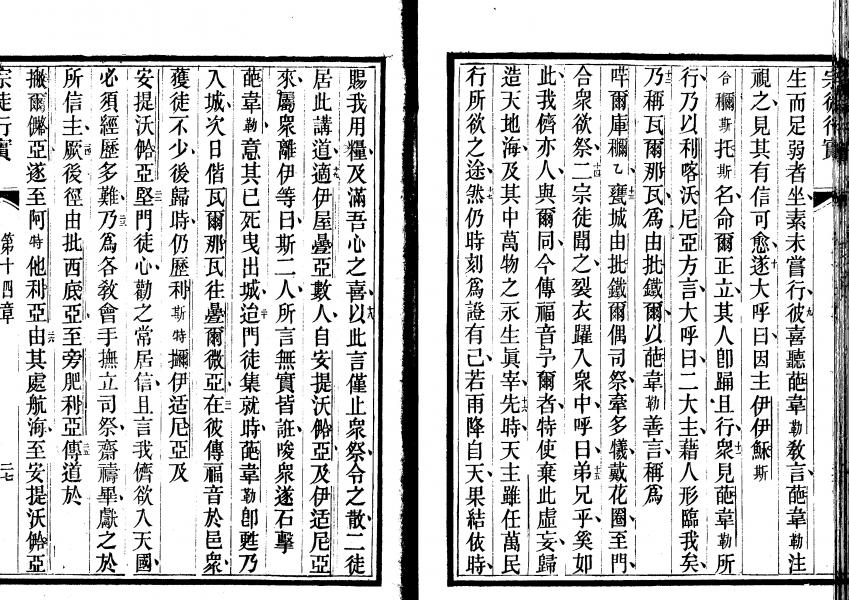 宗徒行實
生而足弱者坐素未嘗行彼喜聽葩韋勒敎言葩韋勒注
視之見其有信可愈遂大呼曰因主伊伊穌斯
合穪斯托斯名命爾正立其人卽踊且行衆見葩韋勒所
行乃以利喀沃尼亞方言大呼曰二大主藉人形臨我矣
乃稱瓦爾那瓦爲由批鐵爾以葩韋勒善言稱爲
哶爾庫穪乙甕城由批鐵爾偶司祭牽多犧戴花圈至門
合衆欲祭二宗徒聞之裂衣躍入衆中呼曰弟兄乎奚如
此我儕亦人與爾同今傳福音予爾者特使棄此虛妄歸
造天地海及其中萬物之永生眞宰先時天主雖任萬民
行所欲之途然仍時刻爲證有已若雨降自天果結依時
賜我用糧及滿吾心之喜以此言僅止衆祭令之散二徒
居此講道適伊屋疊亞數人自安提沃㒆亞及伊适尼亞
來屬衆離伊等曰斯二人所言無實皆誑唆衆遂石擊
葩韋勒意其已死曳出城迨門徒集就時葩韋勒卽甦乃
入城次日偕瓦爾那瓦往疊爾微亞在彼傳福音於邑衆
獲徒不少後歸時仍歷利斯特攦伊适尼亞及
安提沃㒆亞堅門徒心勸之常居信且言我儕欲入天國
必須經歷多難乃爲各敎會手撫立司祭齋禱畢獻之於
所信主厥後徑由批西底亞至旁肥利亞傳道於
撇爾㒆亞遂至阿特他利亞由其處航海至安提沃㒆亞
宗徒行實
第十四章
二七